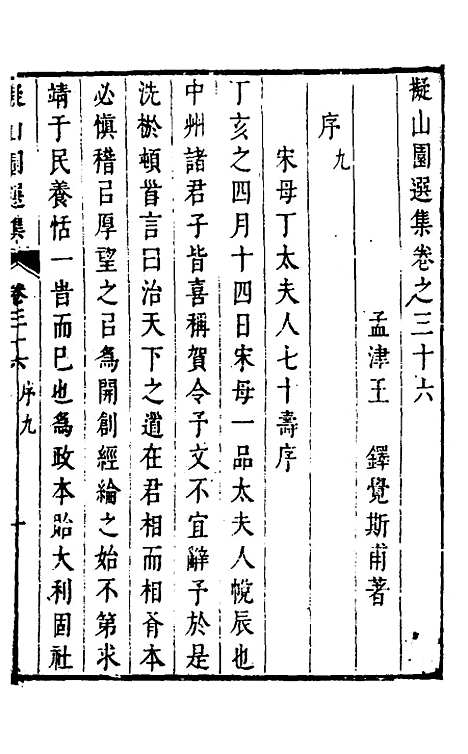 擬山園選集卷之三十六
孟津王 鐸覺斯甫著
序九
宋母丁太夫人七十壽序
丁亥之四月十四日宋母一品太夫人帨辰也
中州諸君子皆喜稱賀令子文不宜辭予於是
洗㪺頓首言曰治天下之道在君相而相脊本
必慎稽㠯厚望之㠯為開創經綸之始不第求
靖于民養恬一昔而已也為政本貽大利固社
擬山園選集 卷三十六 序九 十